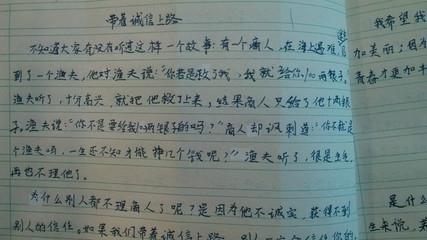 带着诚信上路
不知道大家有没有听过这样一个故事:有一个商人,在海上遇难,遇
到了一个渔夫,他对渔夫说:"你若是救了我,我就给你100两银子。"
渔夫听了,十分高兴,就把他救了上来,结果商人只给了他十两银
子。渔夫说:"你不是要给我100两银子的吗?"商人却讽刺道:"你不就是
个渔夫吗,一生还不知才能挣几个钱呢?"渔夫听了,很是生气,
再也不理他了。
为什么别人都不理商人了呢?是因为他不诚实,获得不到
别人的信任。如果我们带着诚信上路
我希望我
加美丽;因为
青春才更加丰
是什么
生来说,